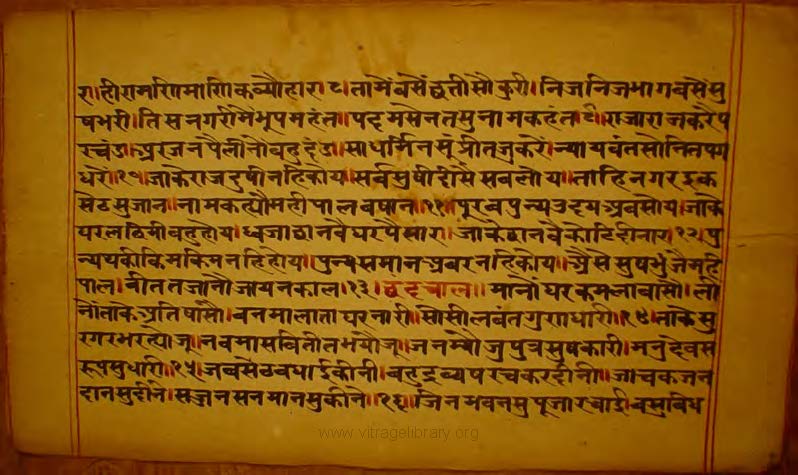 रा।हीरामनिमानिकव्यौहार।८।तामैबसैंछत्तीसौकुरी।निजनिजभागबसैंसु
षभरी।तिसनगरीमैंभूपमहंत॥पदमसेनतसुनामकहंत।९।राजाराजकरैप
रचंड।अरजनपैलीनौबहुदंड॥साधर्मिनसंप्रीतजुकरें।न्यायवंतसोनितपग
धरो॥१०॥जाकेराजदुषीनहिकोय।सर्वसुषीदीसैसबलोय॥ताहिनगरइक
सेठसुजान।नामकह्यौमहीपालबषान॥११॥पूरबपुन्यउदयअबसोय।जाकै
घरलछिमीबहुहोय॥ध्वजाठानवैघरपैसारा।जाकेठानवैकोटिदीनार।१२।पु
न्यथकीकिमकिमनहिहोय॥पुन्यसमानअवरनहिकोय।अैसेसुषभुंजैमहि
पाल।बीततजानौजायनकाल।१३।छंदचाल॥मानौंघरकमलाबासौ।ली
नौंताकेअतिषासौ॥बनमालाताघरनारी॥सोसीलवंतगुणधारी।१४।ताकेसु
रगरभरह्यौजू।नवमासबितीतभयौजू।जनम्यौजुपुत्रसुषकारी।मनुदेवस
रूपसुधारी॥१५॥जबसेठबधाईकीनी।बहुद्रव्यषरचकरदीनी॥जाचकजन
दानसुदीने।सज्जनसनमानसुकीने॥१६॥जिनभवनसुपूजारचाई।बसुबिध
www.vitragelibrary.org